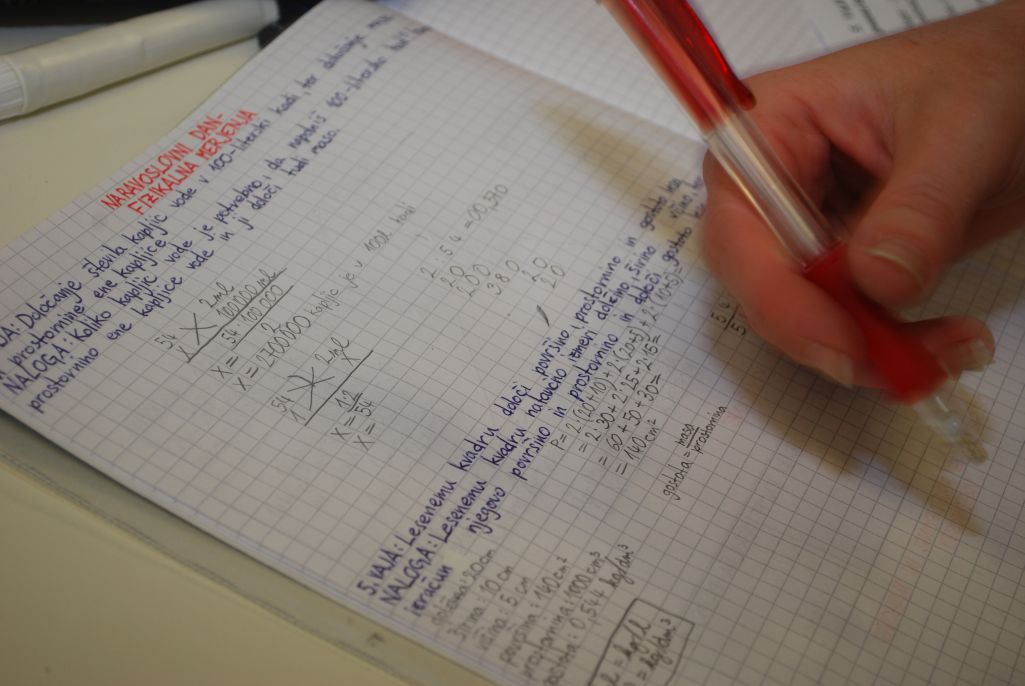 NARAVOSLOVNI DAN-
FIZIKALNA MERJENJA
JA: Določanje števila kapljic vode v 100-literski kadi ter določanje
prostornine ene kapljice
NALOGA: Koliko kapljic vode je potrebno, da napolniš 100-litersko
prostornino ene kapljice vode in ji določi tudi maso.
54 2ml
x 100000ml
x = 54·100.000
2
x = 2700000 kapljic je v 100l kadi
54 2ml
1 x
x = 1·2
54
x =
2 : 54 = 00,370
20
200
380
20
20
5. VAJA: Lesenemu kvadru določi površino, prostornino in gostoto
NALOGA: Lesenemu kvadru natančno izmeri dolžino, širino in višino,
izračun njegovo površino in prostornino in določi gostoto
dolžina: 20cm
širina: 10 cm
višina: 5 cm
površina: 140 cm²
prostornina: 1000 cm³
gostota: 0,544 kg/dm³
P = 2·(20+10) + 2·(20+5) + 2·(10+5)=
= 2·30 + 2·25 + 2·15=
= 60 + 50 + 30=
= 140 cm²
gostota = masa
prostornina
= kg/l
= kg/dm³